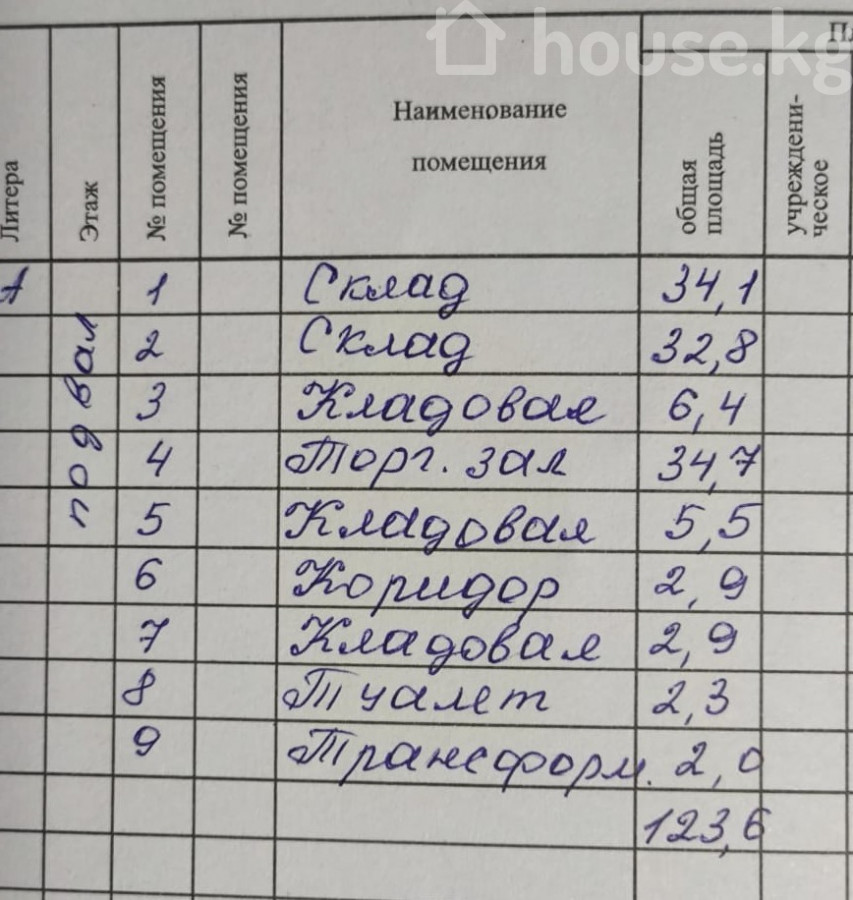 house.kg
Литера
Этаж
№ помещения
№ помещения
Наименование
помещения
общая
площадь
учреждени-
ческое
А
подвал
1 Склад 34,1
2 Склад 32,8
3 Кладовая 6,4
4 Торг. зал 34,7
5 Кладовая 5,5
6 Коридор 2,9
7 Кладовая 2,9
8 Туалет 2,3
9 Трансформ. 2,0
123,6